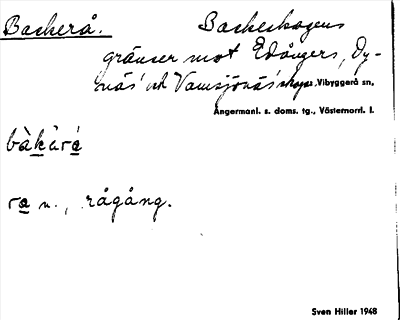 Backerå. Backeskogens
gränser mot Edångers, Dy-
näs' och Vamsjönäs' skogar, Vibyggerå sn,
Ångermanl. s. doms. tg., Västernorrl. l.
bàkǡrá
ra n., rågång.
Sven Hiller 1948